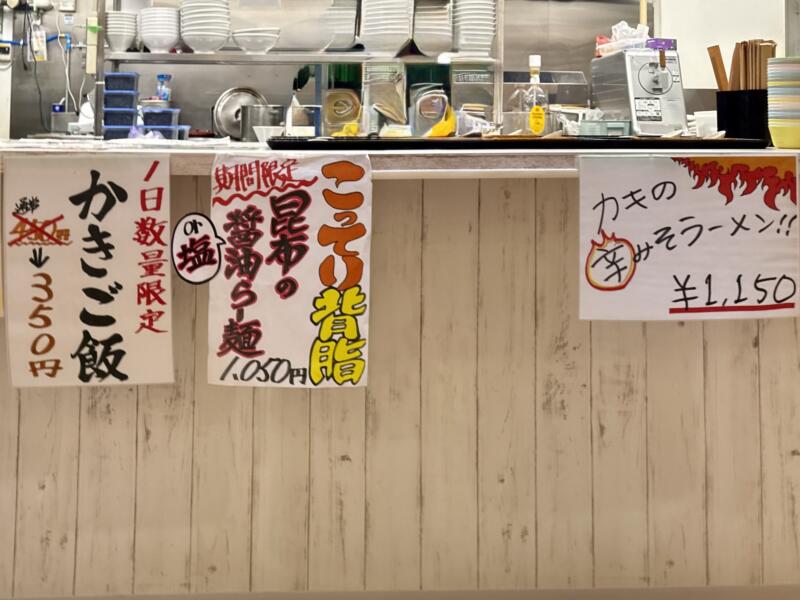 1日数量限定
かきご飯
通常
→350円
期間限定
こってり背脂
昆布の
醤油らー麺
1,050円
or
塩
カキの
辛みそラーメン!!
¥1,150